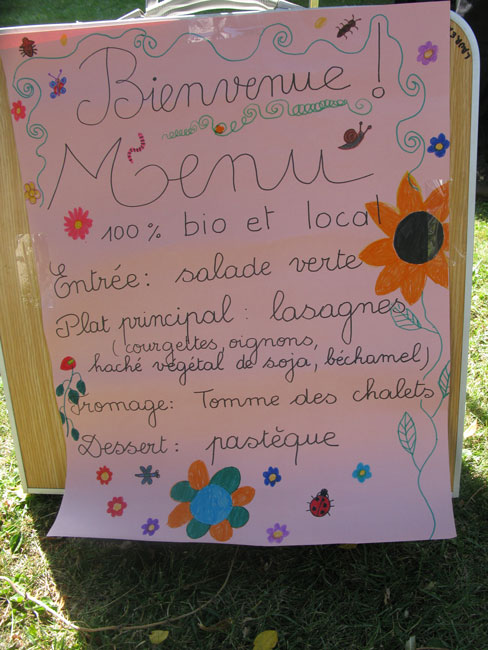 Bienvenue !
Menu
100% bio et local
Entrée : salade verte
Plat principal : lasagnes
(courgettes, oignons,
haché végétal de soja, béchamel)
Fromage : Tomme des chalets
Dessert : pastèque